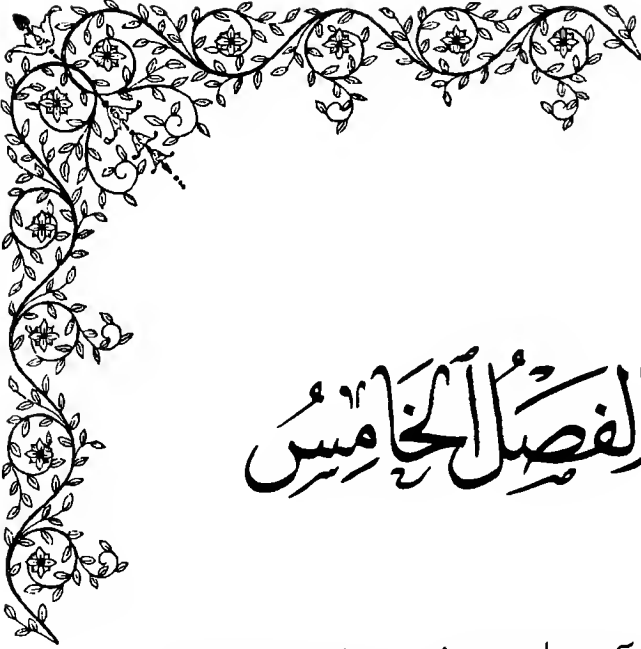 لفَصْلُ ٱلْخَامِسُ